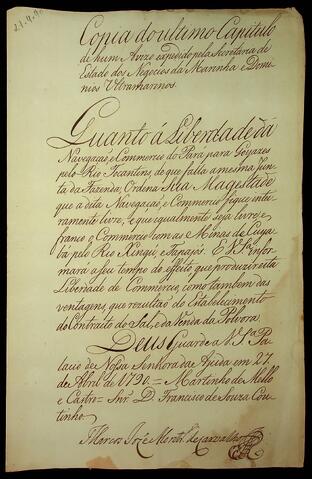 Copia do ultimo Capitulo
de hum Avizo expedido pela Secretaria de
Estado dos Negocios da Marinha e Domi
nios Ultramarinos.
Quanto á Liberdade dá
Navegação e Commercio do Pará para Goyazes
pelo Rio Tocantins, de que falla a mesma Jun
ta da Fazenda; Ordena Sua Magestade
que a dita Navegação, e Commercio fique intei
ramente livre, e que igualmente seja livre, e
franco o Commercio com as Minas de Cuya
bá pelo Rio Xingú, e Tapajós. E V. Sa. infor
mará a seu tempo do effeito que produzir esta
Liberdade de Commercio, como tambem das
ventagens, que resultão do Estabelecimento
do Contracto do Sal, e da Venda da Polvora.
Deus Guarde a V. Sa. Pa
lacio de Nossa Senhora da Ajuda em 27
de Abril de 1790. = Martinho de Mello
e Castro = Snr. D. Francisco de Souza Cou
tinho.
Marcos José Mont.o de Carvalho